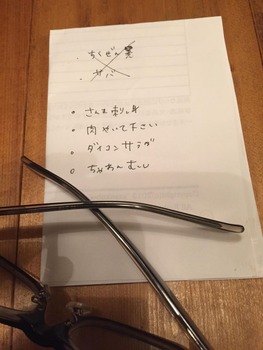 ・ちくぜん
・サバ
○ さんま刺し身
○ 肉やいて下さい
○ ダイコンサラダ
○ ちゃわんむし